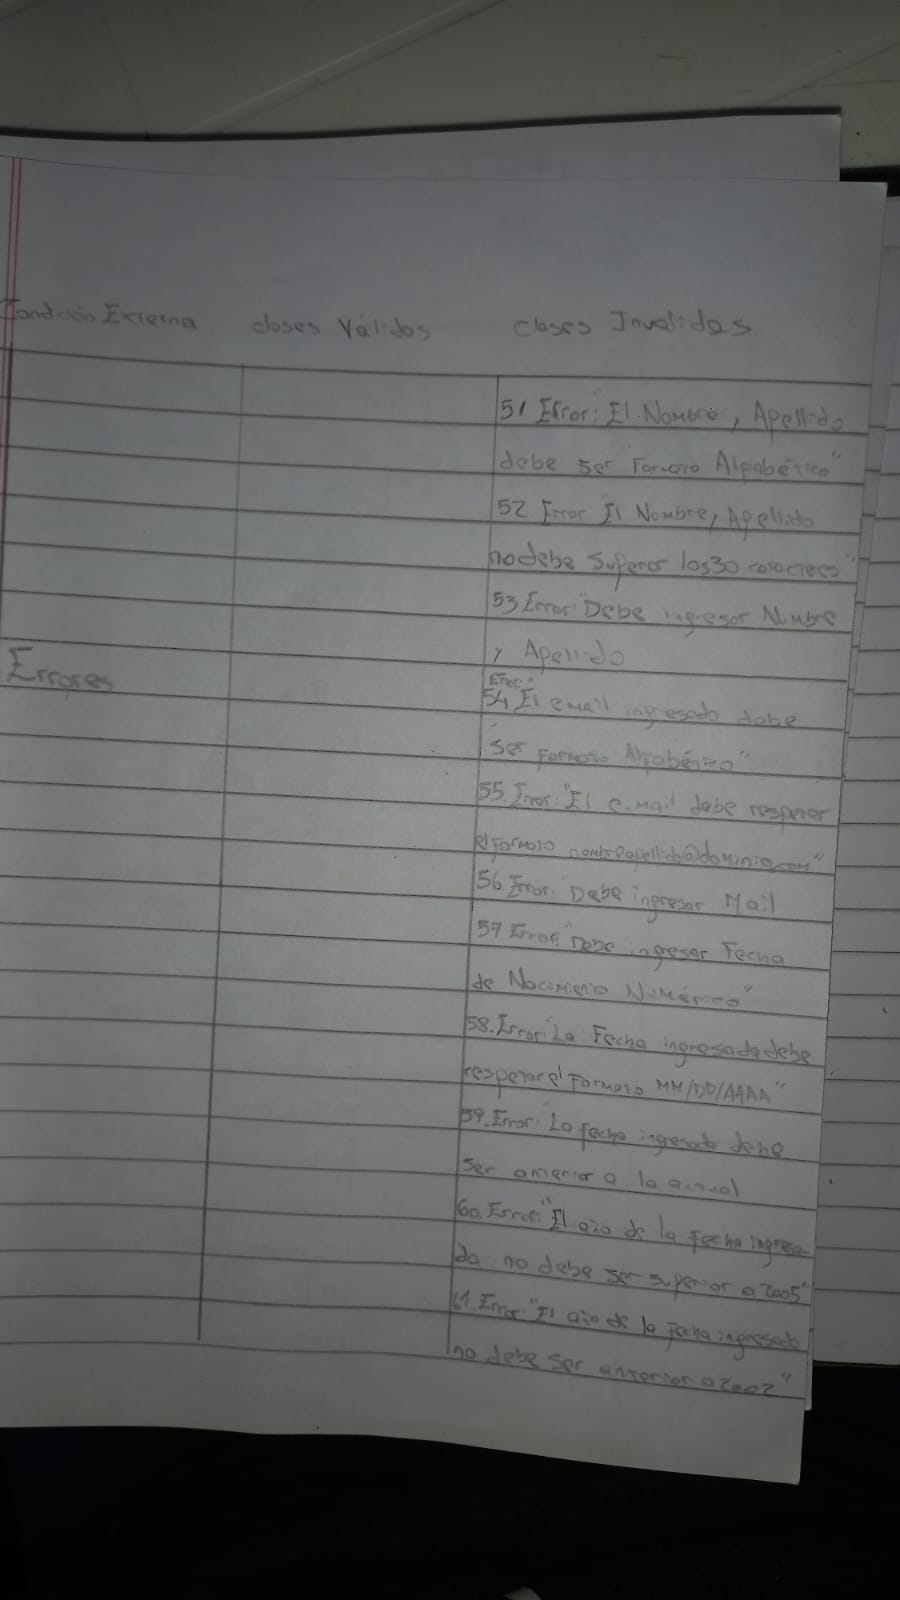 Condición Externa Clases Válidas Clases Invalidas
51 Error: "El Nombre, Apellido
debe ser Formato Alfabético"
52 Error "El Nombre, Apellido
no debe superar los 30 caracteres"
53 Error: "Debe ingresar Numbre
y Apellido
Errores
Error: "
54 El email ingresado debe
ser Formato Alfabético"
55. Error: "El e-mail debe respetar
el formato nombreapellido@dominio.com"
56. Error: "Debe ingresar Mail
57 Error: "Debe ingresar Fecha
de Nacimiento Numérico"
58. Error: "La Fecha ingresada debe
respetar el Formato MM/DD/AAAA"
59. Error: "La fecha ingresada debe
ser anterior a la actual
60. Error: "El año de la Fecha ingresa-
da no debe ser superior a 2005"
61. Error: "El año de la fecha ingresada
no debe ser anterior a 2002"